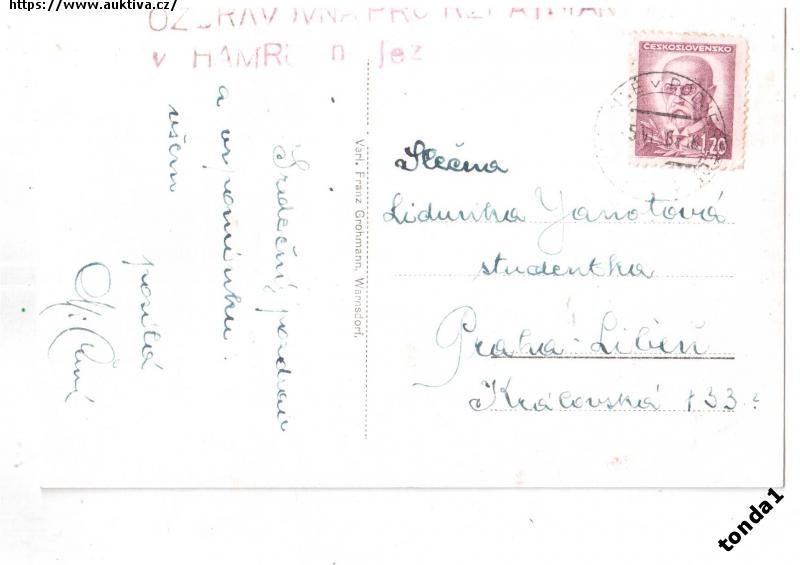 https://www.auktiva.cz/
OZDRAVOVNA PRO REPATRIAN
v HAMRU n Jez
ČESKOSLOVENSKO
1.20
Slečna
Lidunka Janotová
studentka
Praha-Libeň
Královská 133
Srdečný pozdrav
a vzpomínku
všem
posílá
Verl. Franz Grohmann, Warnsdorf.
tonda1